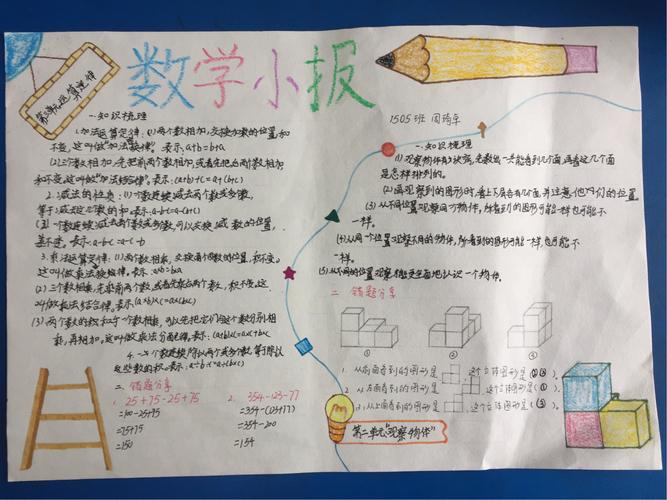 数学小报
第三单元运算定律
1505班
一.知识梳理
1.加法运算定律:(1)两个数相加,交换加数的位置,和
不变,这叫做"加法交换律"。表示:a+b=b+a
(2)三个数相加,先把前两个数相加,或者先把后两数相加
和不变,这叫做"加法结合律"。表示:(a+b)+c=a+(b+c)
2.减法的性质:(1)一个数连续减去两个数或多数,
等于减去这
表示:a-b-c=a-(b+c)
(2)一个数连续减去两个数或多数,可以交换减数的位置,
差不变。表示:a-b-c=a-c-b
3.乘法运算定律:(1)两个数相乘,交换两个数的位置,积不变。
这叫做乘法交换律。表示:a×b=b×a
(2)三个数相乘,先乘前两个数,或者先乘后两个数,积不变,这
叫做乘法结合律。表示:(a×b)×c=a×(b×c)
(3)两个数的和与一个数相乘,可以先把它们与这个数分别相
乘,再相加,这叫做乘法分配律。表示:(a+b)×c=a×c+b×c
4.一个数连续除以两个数或多数,等于除以
这些数的积。表示:a÷b÷c=a÷(b×c)
二、错题分享
1. 25+75-25+75
=100-25+75
=75+75
=150
2. 354-123-77
=354-(123+77)
=354-200
=154
一.知识梳理
(1)观察物体有3块,先数出一共能看到几个面,再看这几个面
是怎样排列的。
(2)画观察到的图形时,看上下层各有几个面,并注意他们的位置
(3)从不同位置观察同一个物体,所看到的图形可能一样也可能不
一样。
(4)从同一个位置观察不同的物体,所看到的图形可能一样,也可能不
一样。
(5)从不同的位置观察才能更全面地认识一个物体。
二 错题分享
① ② ③
1. 从前面看到的图形是 ,这个立体图形是( )。
2. 从左面看到的图形是 ,这个立体图形是( )。
3. 从上面看到的图形是 ,这个立体图形是( )。
第二单元"观察物体"